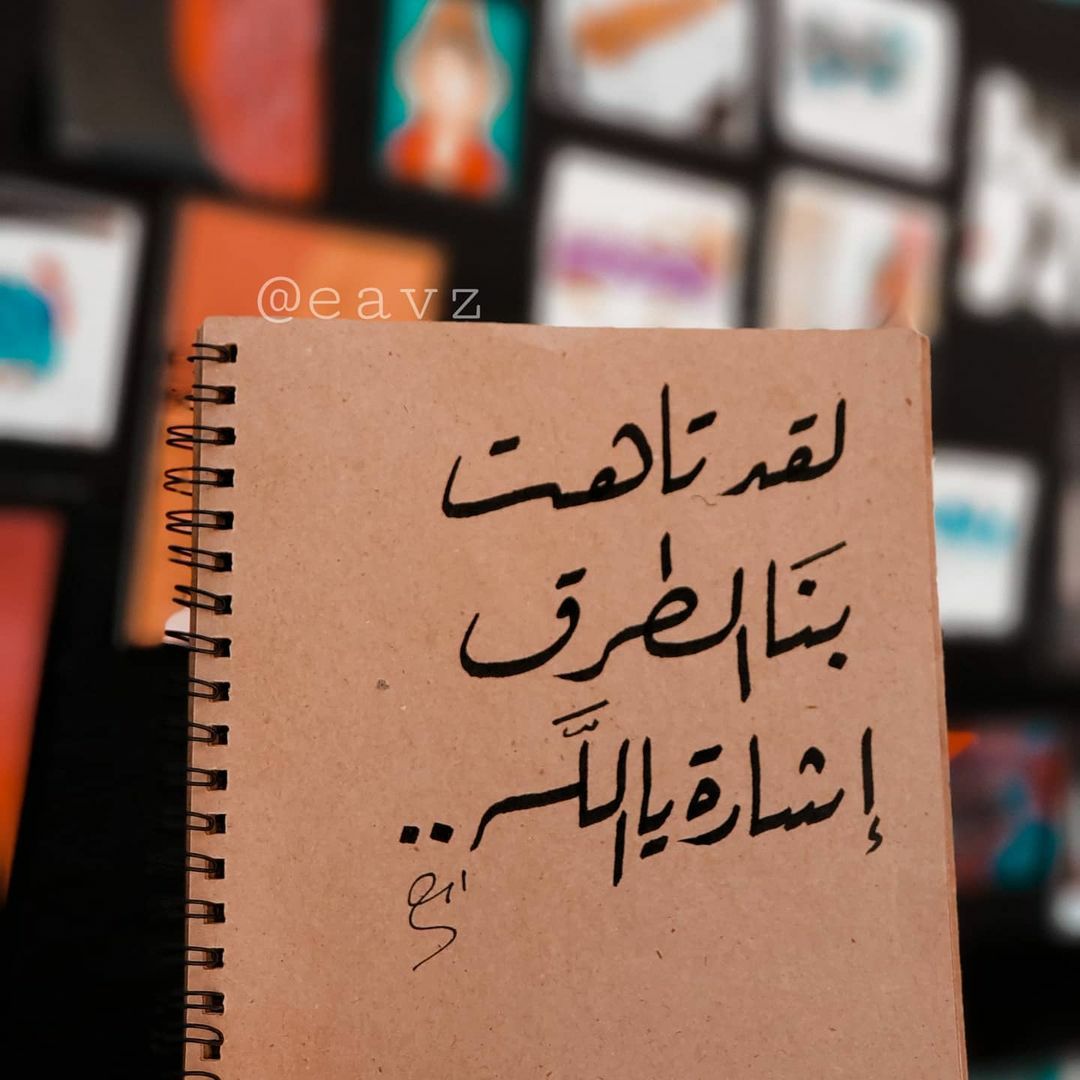 @eavz
لقد تاهت
بنَا الطرق
إشارة يا اللَّه..